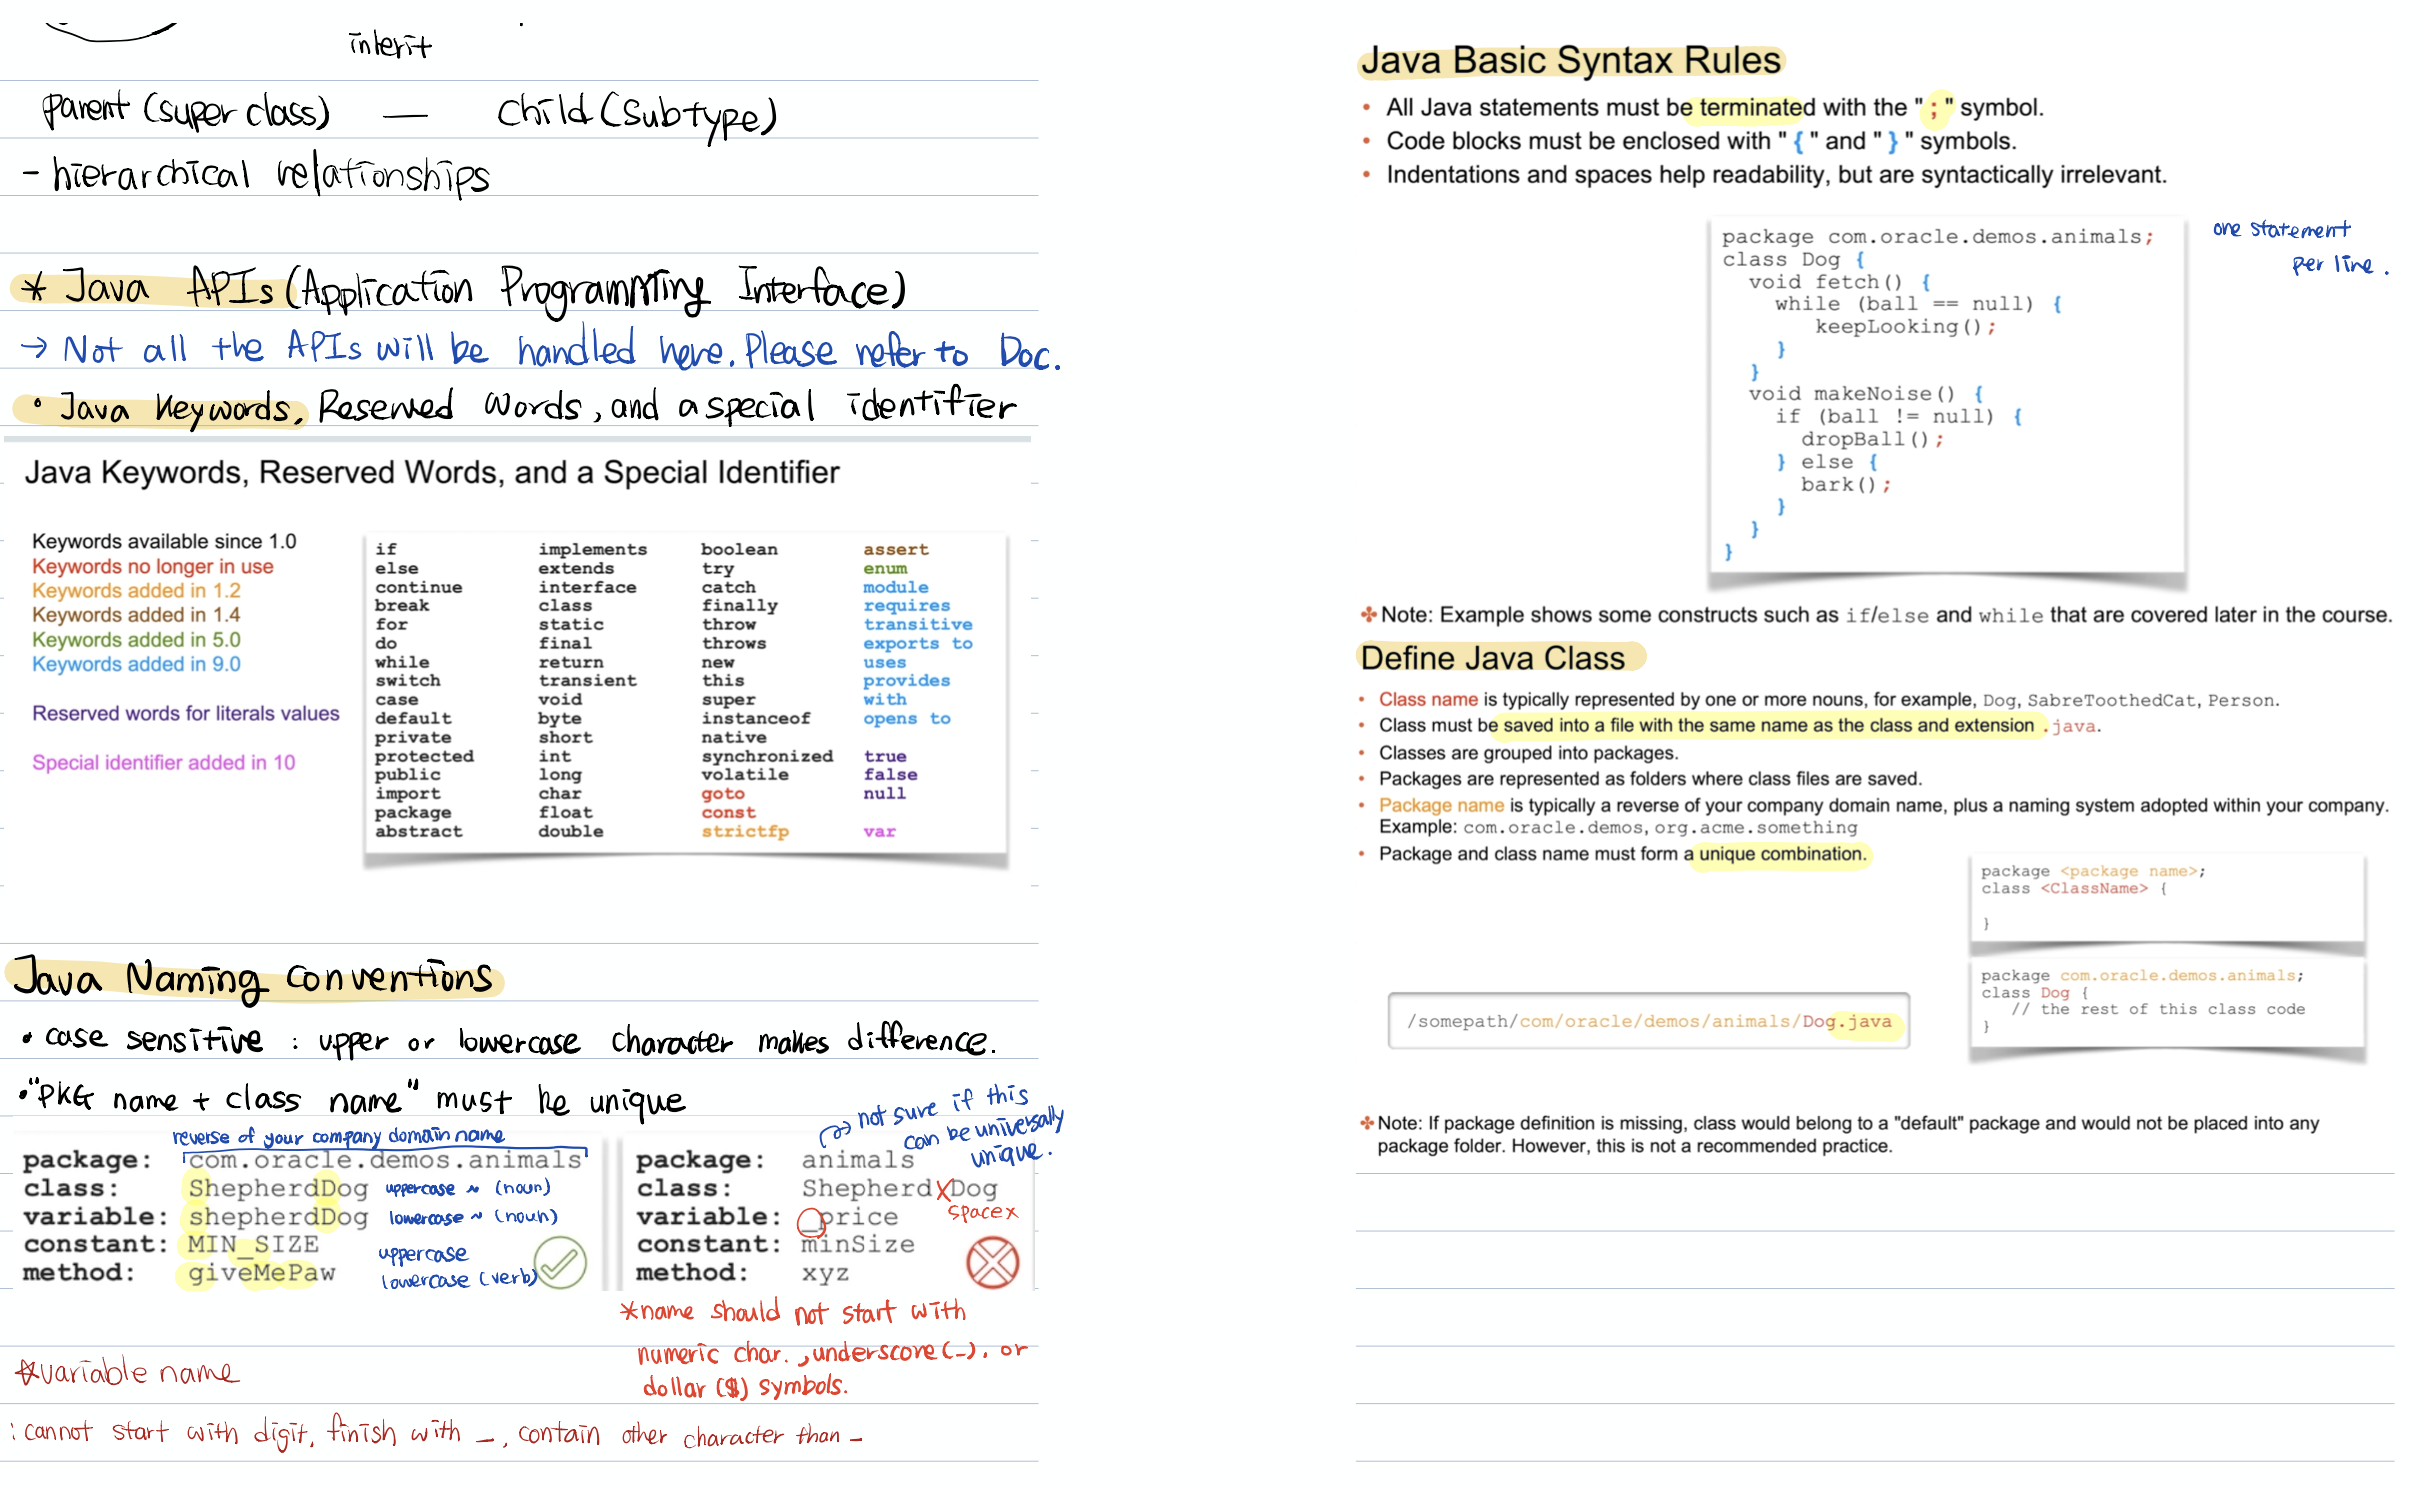 inherit
parent (super class) — child (subtype)
- hierarchical relationships
* Java APIs (Application Programming Interface)
→ Not all the APIs will be handled here. Please refer to Doc.
• Java Keywords, Reserved Words, and a special identifier
Java Keywords, Reserved Words, and a Special Identifier
Keywords available since 1.0
Keywords no longer in use
Keywords added in 1.2
Keywords added in 1.4
Keywords added in 5.0
Keywords added in 9.0
Reserved words for literals values
Special identifier added in 10
if implements boolean assert
else extends try enum
continue interface catch module
break class finally requires
for static throw transitive
do final throws exports to
while return new uses
switch transient this provides
case void super with
default byte instanceof opens to
private short native
protected int synchronized true
public long volatile false
import char goto null
package float const
abstract double strictfp var
Java Naming Conventions
• case sensitive : upper or lowercase character makes difference.
• "PKG name + class name" must be unique
reverse of your company domain name
package: com.oracle.demos.animals
class: ShepherdDog uppercase ~ (noun)
variable: shepherdDog lowercase ~ (noun)
constant: MIN_SIZE uppercase
method: giveMePaw lowercase (verb)
→ not sure if this
can be universally
unique.
package: animals
class: Shepherd X Dog
space x
variable: _price
constant: minSize
method: xyz
*name should not start with
numeric char., underscore(_), or
dollar ($) symbols.
*variable name
: cannot start with digit, finish with _, contain other character than _
Java Basic Syntax Rules
• All Java statements must be terminated with the " ; " symbol.
• Code blocks must be enclosed with " { " and " } " symbols.
• Indentations and spaces help readability, but are syntactically irrelevant.
package com.oracle.demos.animals;
class Dog {
void fetch() {
while (ball == null) {
keepLooking();
}
}
void makeNoise() {
if (ball != null) {
dropBall();
} else {
bark();
}
}
}
one statement
per line.
✤ Note: Example shows some constructs such as if/else and while that are covered later in the course.
Define Java Class
• Class name is typically represented by one or more nouns, for example, Dog, SabreToothedCat, Person.
• Class must be saved into a file with the same name as the class and extension .java.
• Classes are grouped into packages.
• Packages are represented as folders where class files are saved.
• Package name is typically a reverse of your company domain name, plus a naming system adopted within your company.
Example: com.oracle.demos, org.acme.something
• Package and class name must form a unique combination.
package <package name>;
class <ClassName> {
}
package com.oracle.demos.animals;
class Dog {
// the rest of this class code
}
/somepath/com/oracle/demos/animals/Dog.java
✤ Note: If package definition is missing, class would belong to a "default" package and would not be placed into any
package folder. However, this is not a recommended practice.